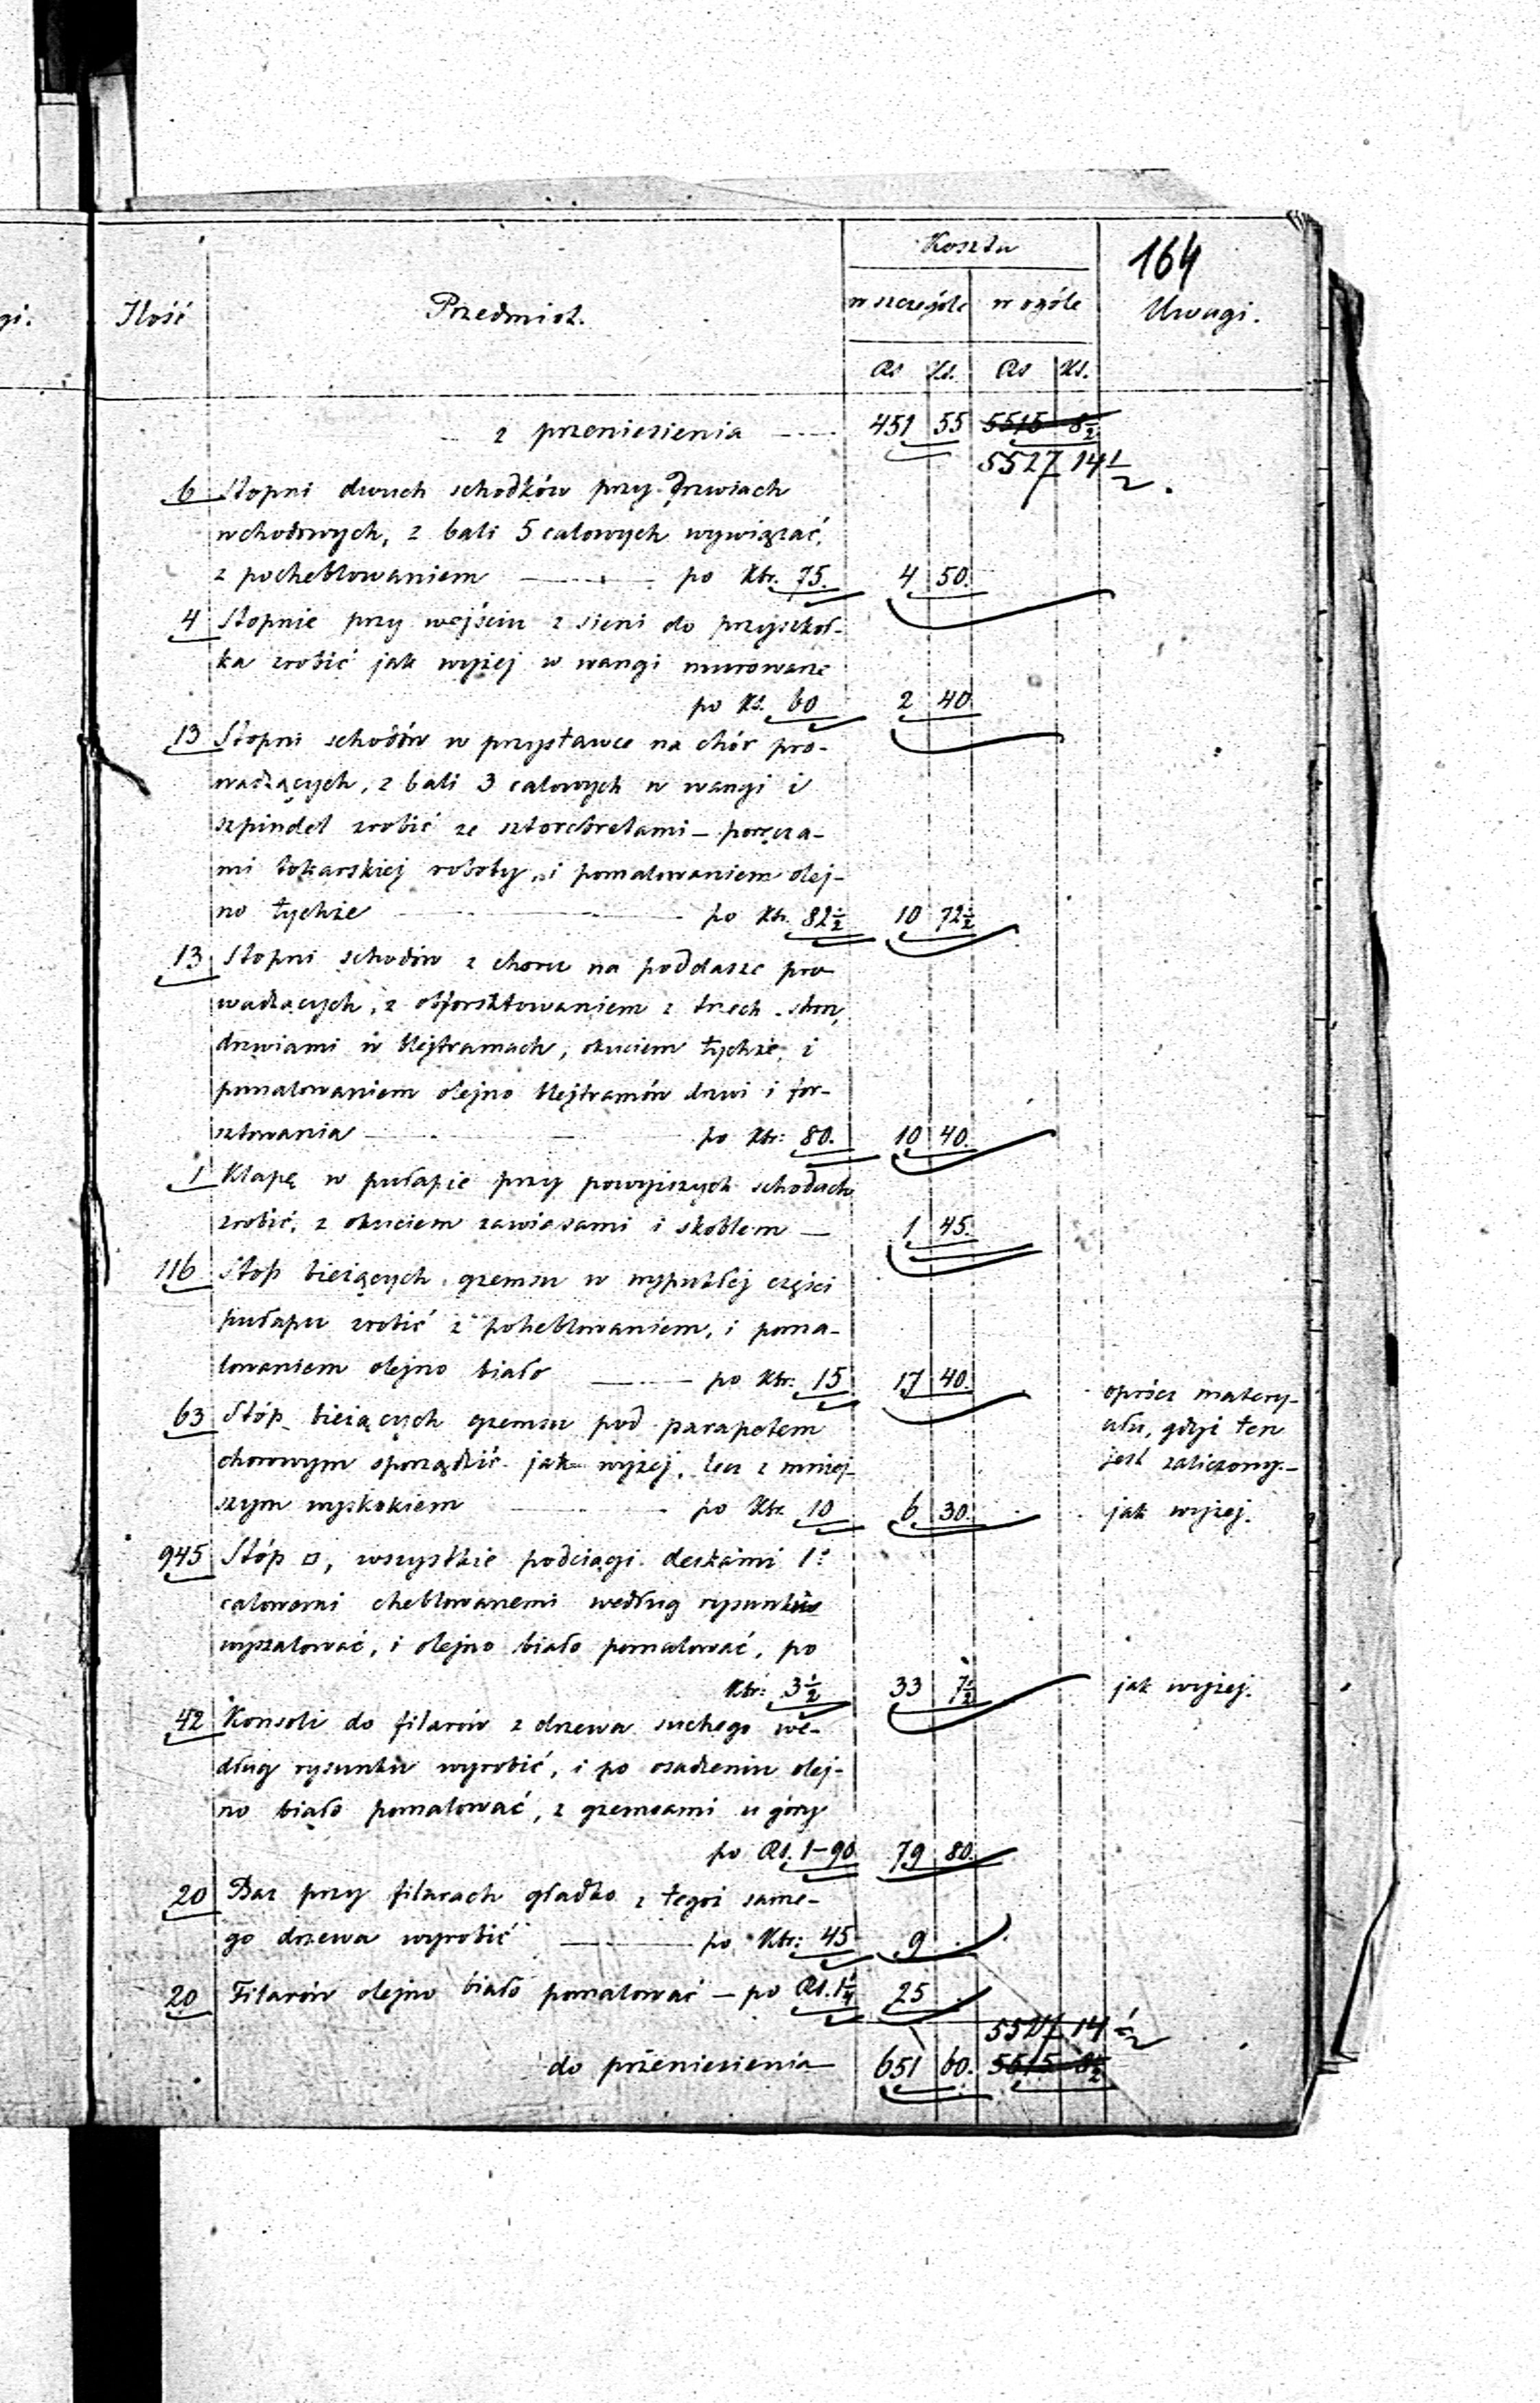 164
gi.
Ilość Przedmiot. Kosztu Uwagi.
w szczególe w ogóle
Rs Ks. Rs Ks.
z przeniesienia 451 55 5515 8½
5527 14½
6 Stopni dwuch schodków przy drzwiach
wchodowych, z bali 5 calowych wywiązać,
z pocheblowaniem po Ktr. 75. 4 50.
4 Stopnie przy wejściu z sieni do przyszkoł-
ka zrobić jak wyżej w wangi murowane
po Ks. 60 2 40.
13 Stopni schodów w przystawce na chór pro-
wadzących, z bali 3 calowych w wangi i
szpindel zrobić ze sztorcbretami – poręcza-
mi tokarskiej roboty, i pomalowaniem olej-
no tychże po Ktr. 82½ 10 72½
13 Stopni schodów z choru na poddasze pro
wadzących, z obforsztowaniem z trzech stron,
drzwiami w klejtramach, okuciem tychże, i
pomalowaniem olejno klejtramów drzwi i for-
sztowania po Ktr: 80. 10 40.
1 Klapę w pułapie przy powyższych schodach
zrobić, z okuciem zawiasami i skoblem — 1 45.
116 Stóp bieżących gzemsu w wypukłej części
pułapu zrobić z poheblowaniem, i poma-
lowaniem olejno biało po Ktr: 15 17 40. oprócz matery-
63 Stóp bieżących gzemsu pod parapetem ału, gdyż ten
chorowym sporządzić jak wyżej, lecz z mniej- jest zaliczony.–
szym wyskokiem po Ktr. 10 6 30. jak wyżej.
945 Stóp □, wszystkie podciągi deskami 1:
calowemi cheblowanemi według rysunku
wyszalować, i olejno biało pomalować, po
Ktr: 3½ 33 7½ jak wyżej.
42 Konsoli do filarów z drzewa suchego we-
dług rysunku wyrobić, i po osadzeniu olej-
no biało pomalować, z gzemsami u góry
po Rs. 1–90 79 80.
20 Baz przy filarach gładko z tegoż same-
go drzewa wyrobić po Ktr: 45 9 .
20 Filarów olejno biało pomalować – po Rs. 1¼ 25 .
5527 14½
do przeniesienia 651 60. 5515 8½